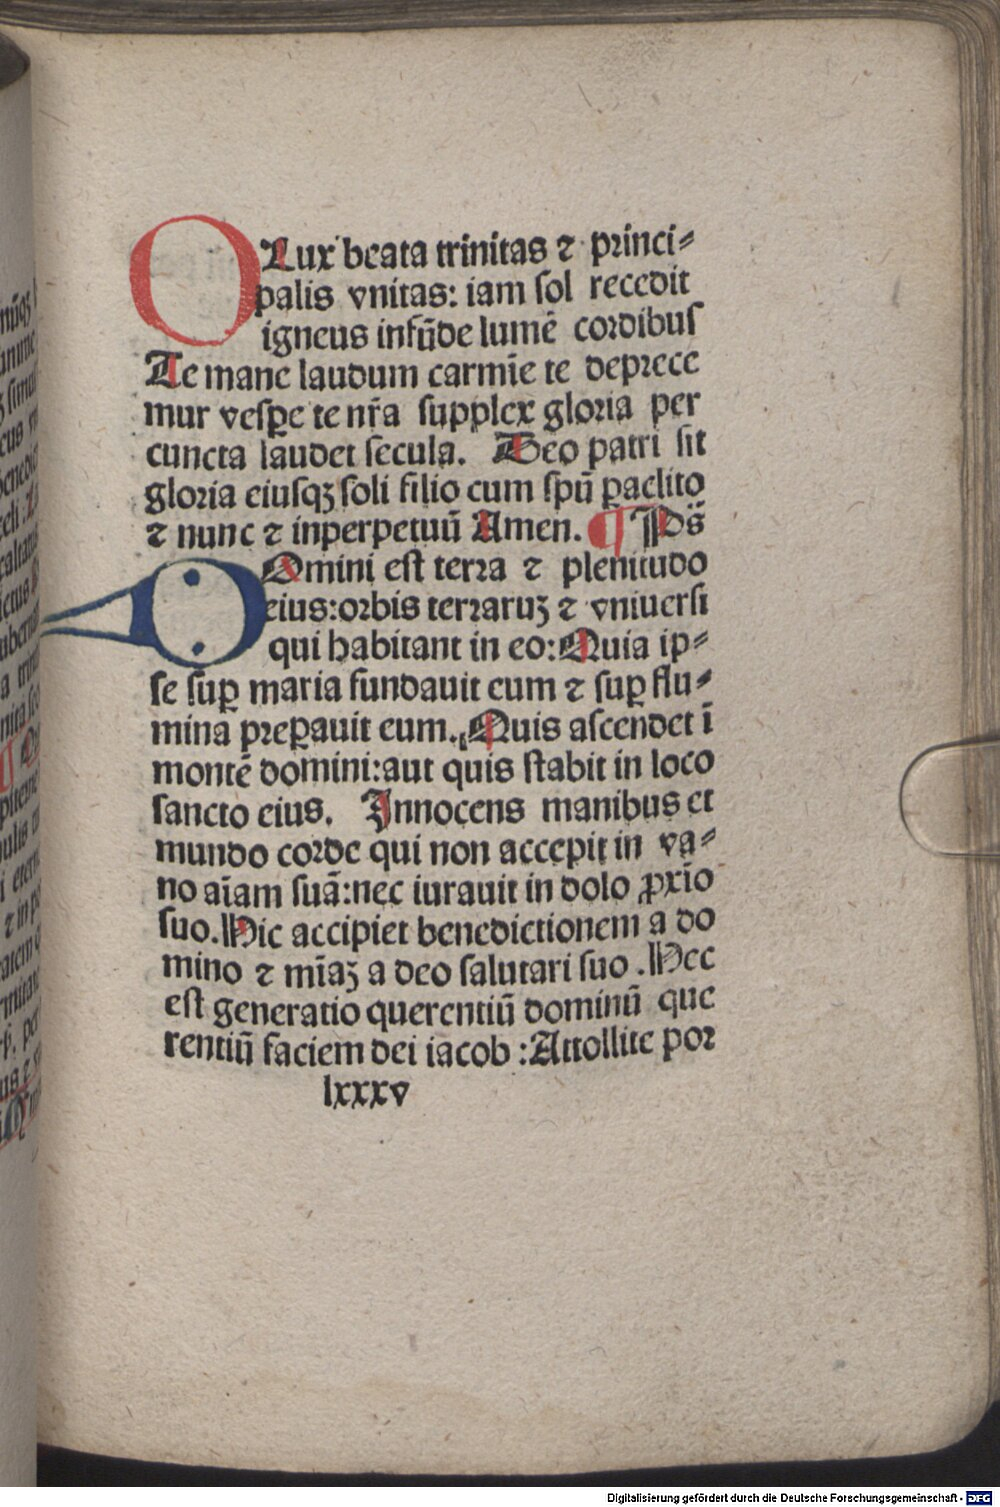 O Lux beata trinitas ⁊ princi⸗
palis vnitas: iam sol recedit
igneus infūde lumē cordibus
Te mane laudum carmīe te deprece
mur vespe te nr̄a supplex gloria per
cuncta laudet secula. Deo patri sit
gloria eiusqꝫ soli filio cum spū paclito
⁊ nunc ⁊ inperpetuū Amen. ¶ Ps̄
DOmini est terra ⁊ plenitudo
eius:orbis terraruꝫ ⁊ vniuersi
qui habitant in eo:Quia ip⸗
se suꝑ maria fundauit eum ⁊ suꝑ flu⸗
mina preꝑauit eum. Quis ascendet ī
montē domini:aut quis stabit in loco
sancto eius. Innocens manibus et
mundo corde qui non accepit in va⸗
no aīam suā:nec iurauit in dolo ꝓxīo
suo.Hic accipiet benedictionem a do
mino ⁊ mīaꝫ a deo salutari suo .Hec
est generatio querentiū dominū que
rentiū faciem dei iacob :Attollite por
lxxxv
Digitalisierung gefördert durch die Deutsche Forschungsgemeinschaft - DFG